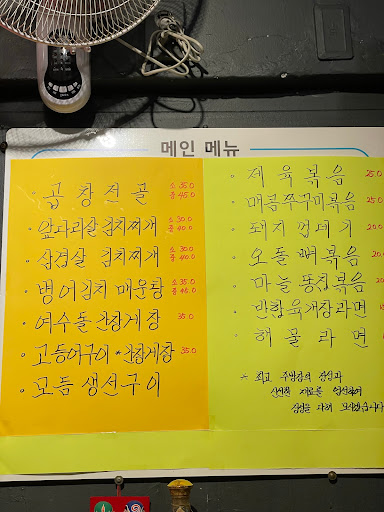 메인 메뉴
· 곱창전골 소 35.0 중 45.0
· 앞다리살 김치찌개 소 30.0 중 40.0
· 삼겹살 김치찌개 소 30.0 중 40.0
· 병어김치 매운탕 소 35.0 중 45.0
· 여수돌간장게장 35.0
· 고등어구이*간장게장 35.0
· 모듬 생선구이
· 제육볶음 25.0
· 매콤쭈꾸미볶음 25.0
· 돼지껍데기 20.
· 오돌뼈볶음 20.
· 마늘똥집볶음 20.
· 만합육개장라면
· 해물라면
* 최고 주방장의 정성과
신선한 재료를 엄선하여
정성을 다해 모시겠습니다